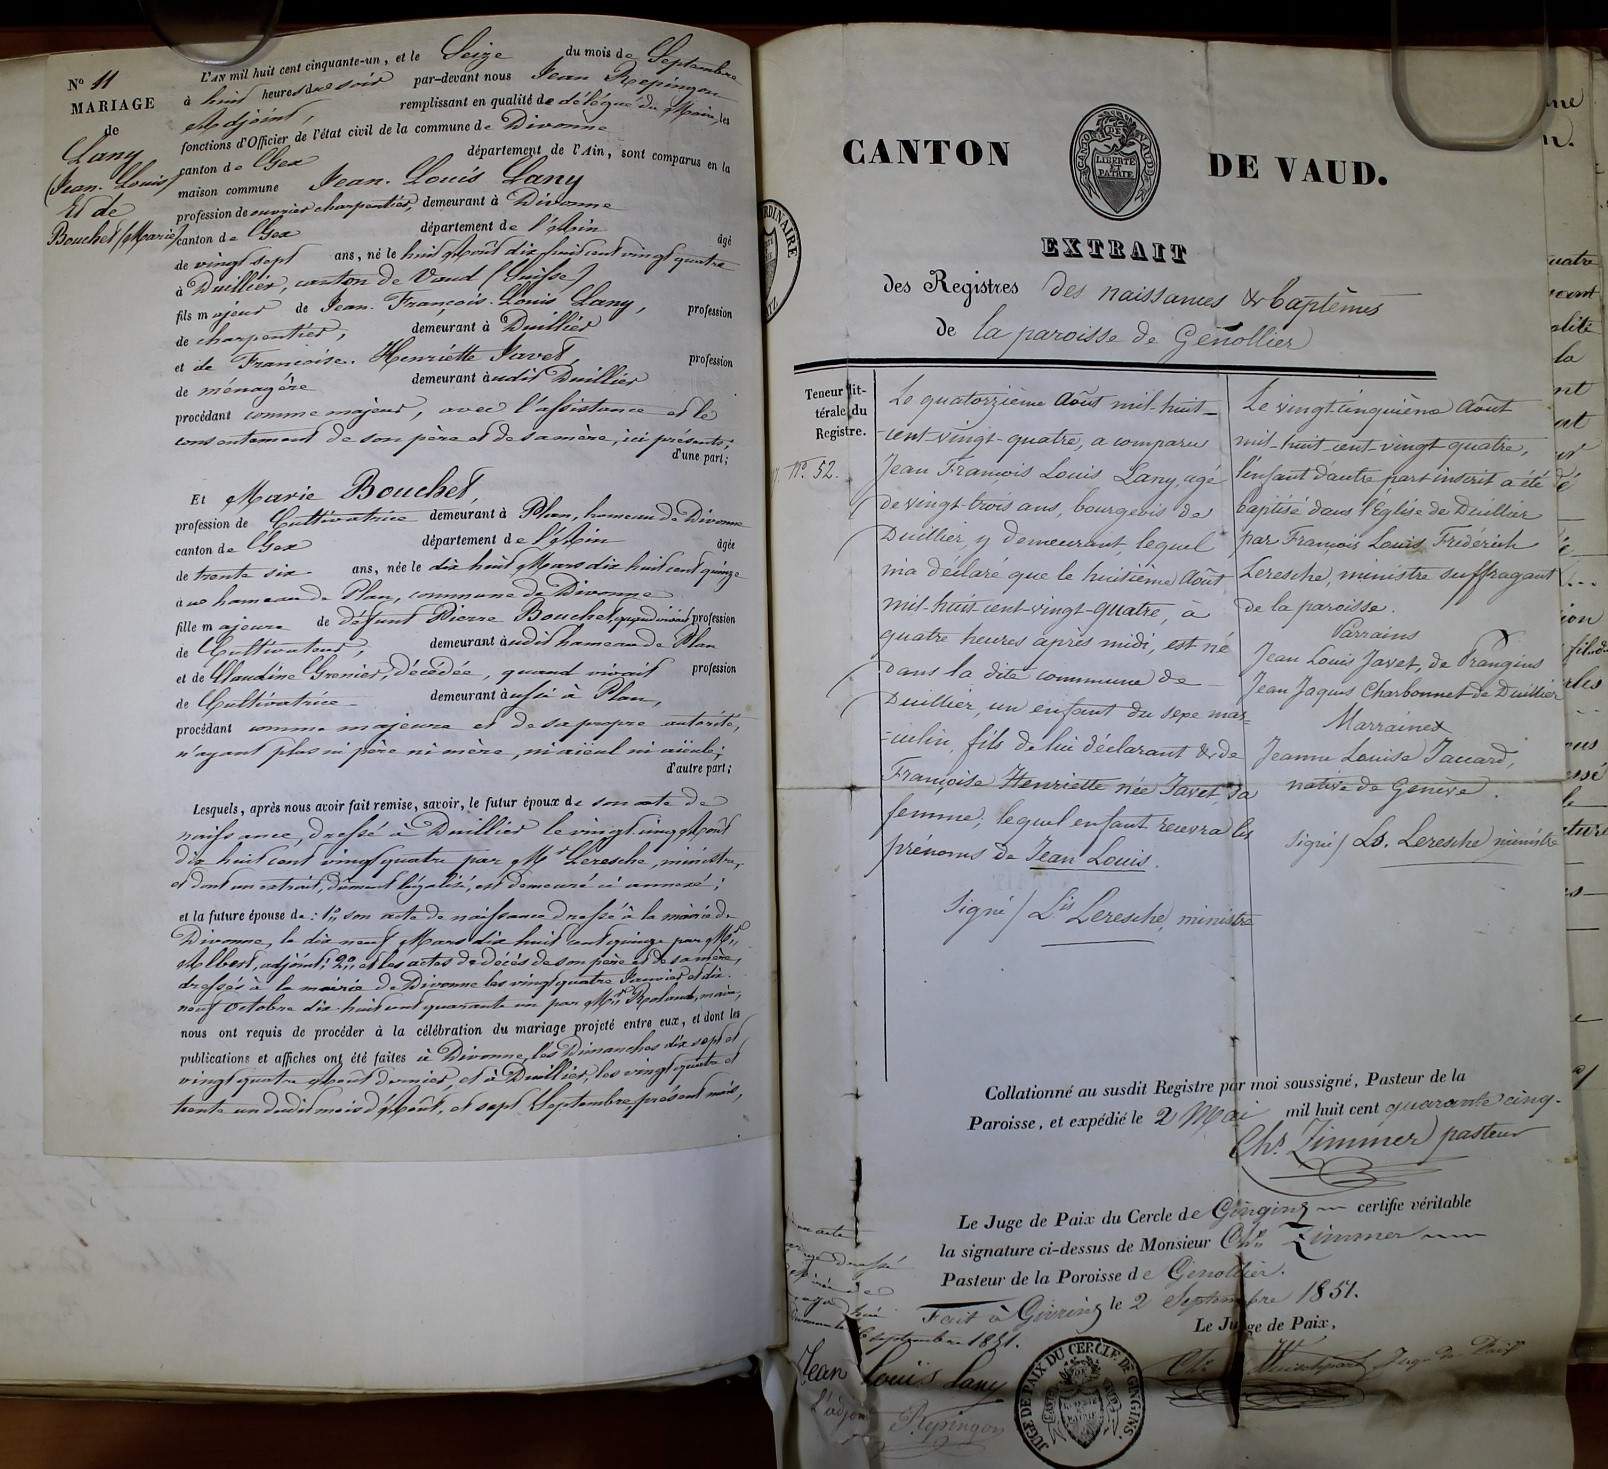 N° 11
MARIAGE
de
Lany
(Jean-Louis)
Et de
Bouchet (Marie)
L'AN mil huit cent cinquante-un, et le Seize du mois de Septembre
à huit heures du soir par-devant nous Jean Repingon
Adjoint, remplissant en qualité de délégué du Maire, les
fonctions d'Officier de l'état civil de la commune de Divonne
canton de Gex département de l'Ain, sont comparus en la
maison commune Jean-Louis Lany
profession de ouvrier charpentier, demeurant à Divonne
canton de Gex département de l'Ain âgé
de vingt sept ans, né le huit Août dix huit cent vingt quatre
à Duillier, canton de Vaud (Suisse)
fils majeur de Jean-François-Louis Lany, profession
de charpentier, demeurant à Duillier
et de Françoise-Henriette Javet, profession
de ménagère demeurant audit Duillier
procédant comme majeur, avec l'assistance et le
consentement de son père et de sa mère, ici présents;
d'une part;
Et Marie Bouchet,
profession de Cultivatrice demeurant à Plan, hameau de Divonne
canton de Gex département de l'Ain âgée
de trente six ans, née le dix huit Mars dix huit cent quinze
au hameau de Plan, commune de Divonne
fille majeure de défunt Pierre Bouchet, quand vivait profession
de Cultivateur, demeurant audit hameau de Plan
et de Claudine Grenier, décédée, quand vivait profession
de Cultivatrice demeurant aussi à Plan,
procédant comme majeure et de sa propre autorité,
n'ayant plus ni père ni mère, ni aïeul ni aïeule;
d'autre part;
Lesquels, après nous avoir fait remise, savoir, le futur époux de son acte de
naissance, dressé à Duillier le vingt cinq Août
dix huit cent vingt quatre par Mr Leresche, ministre,
et dont un extrait, dûment légalisé, est demeuré ci annexé;
et la future épouse de : 1° son acte de naissance dressé à la mairie de
Divonne, le dix neuf Mars dix huit cent quinze par Mr
Albert, adjoint; 2° et les actes de décès de son père et de sa mère,
dressés à la mairie de Divonne les vingt quatre Janvier et dix-
neuf octobre dix huit cent quarante un par Mr Roland, maire,
nous ont requis de procéder à la célébration du mariage projeté entre eux, et dont les
publications et affiches ont été faites à Divonne, les Dimanches dix sept et
vingt quatre Août dernier, et à Duillier, les vingt quatre et
trente un dudit mois d'Août, et sept Septembre présent mois,
CANTON DE VAUD.
CANTON DE VAUD
LIBERTÉ ET PATRIE
EXTRAIT
des Registres des naissances & baptêmes
de la paroisse de Genollier
Teneur littérale du Registre.
N° 52.
Le quatorzième Août mil-huit-
-cent-vingt-quatre, a comparu
Jean François Louis Lany, agé
de vingt-trois ans, bourgeois de
Duillier, y demeurant, lequel
m'a déclaré que le huitième Août
mil-huit-cent-vingt-quatre, à
quatre heures après midi, est né
dans la dite commune de
Duillier, un enfant du sexe mas=
-culin, fils de lui déclarant & de
Françoise Henriette née Javet, sa
femme; lequel enfant recevra les
prénoms de Jean Louis.
Signé / Ls Leresche, ministre
Le vingt-cinquième Août
mil-huit-cent-vingt quatre,
l'enfant d'autre part inscrit a été
baptisé dans l'Église de Duillier
par François Louis Fréderich
Leresche, ministre suffragant
de la paroisse.
Parrains
Jean Louis Javet, de Prangins
Jean Jaques Charbonnet de Duillier
Marraine
Jeanne Louise Jaccard,
native de Genève.
Signé / Ls. Leresche, ministre
Collationné au susdit Registre par moi soussigné, Pasteur de la
Paroisse, et expédié le 2 Mai mil huit cent quarante cinq.
Chs. Zimmer, pasteur
Le Juge de Paix du Cercle de Gingins certifie véritable
la signature ci-dessus de Monsieur Chs. Zimmer
Pasteur de la Poroisse de Genollier.
Fait à Givrins le 2 Septembre 1851.
Le Juge de Paix,
Juge de Paix
septembre 1851.
Jean Louis Lany
L'adjoint
Repingon
JUGE DE PAIX DU CERCLE DE GINGINS.